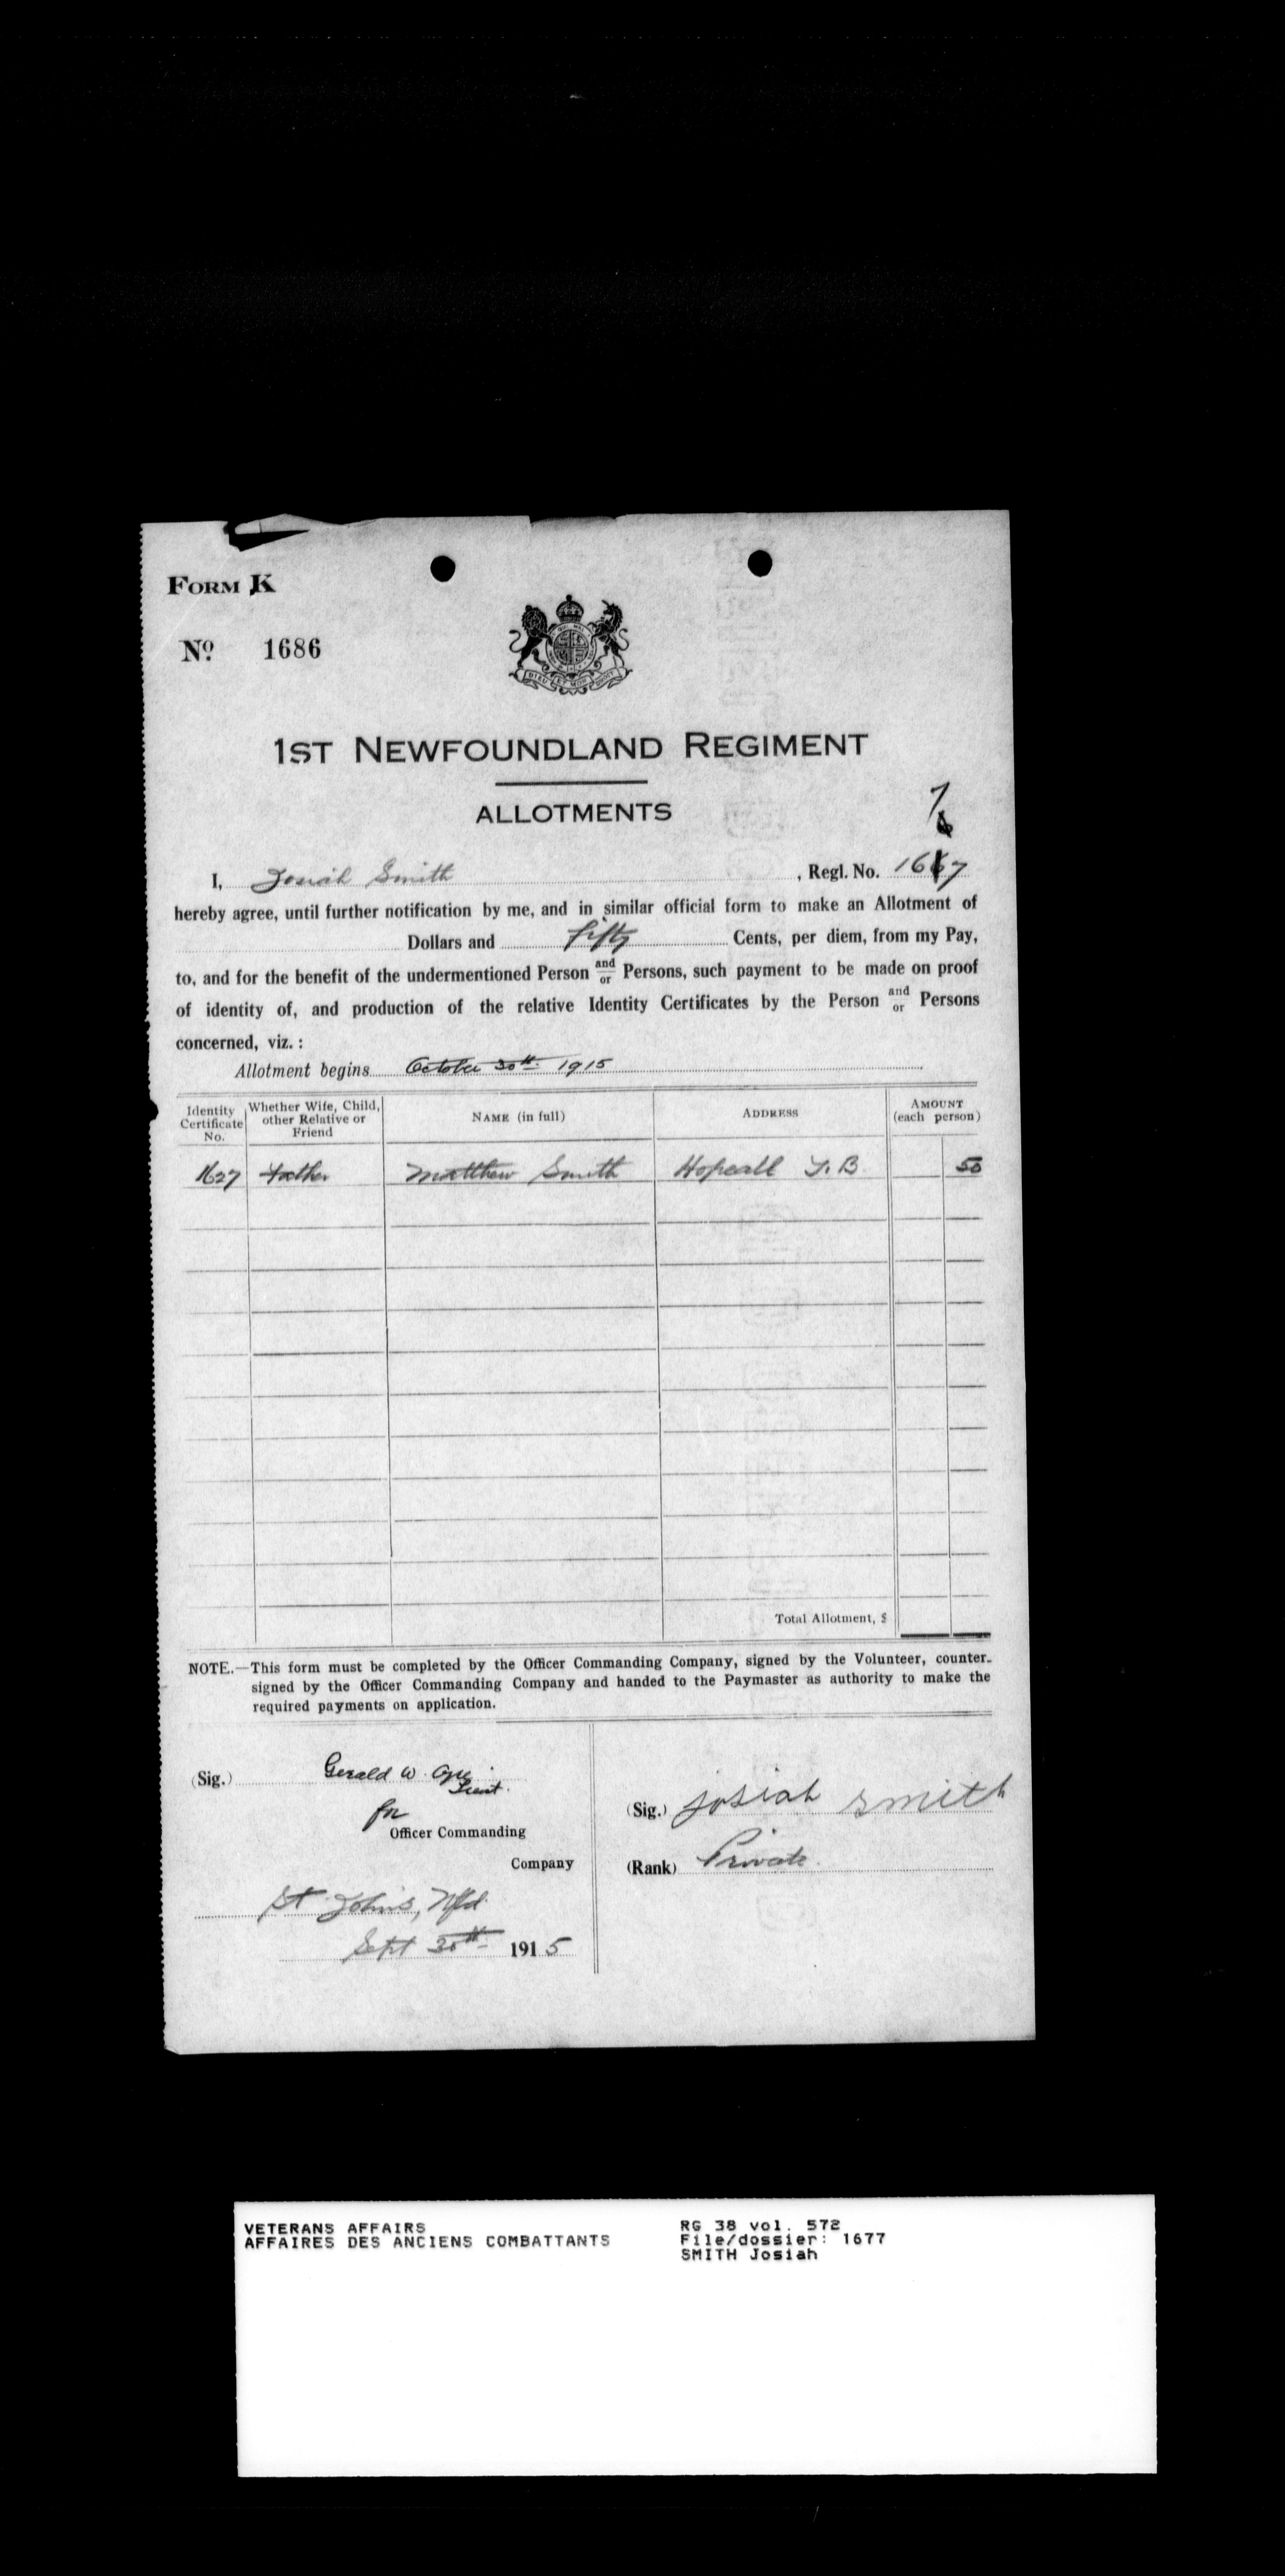 FORM K
No. 1686
1ST NEWFOUNDLAND REGIMENT
ALLOTMENTS
7
I, Josiah Smith , Regl. No. 1667
hereby agree, until further notification by me, and in similar official form to make an Allotment of
Dollars and fifty Cents, per diem, from my Pay,
to, and for the benefit of the undermentioned Person and/or Persons, such payment to be made on proof
of identity of, and production of the relative Identity Certificates by the Person and/or Persons
concerned, viz. :
Allotment begins October 30th 1915
Identity Certificate No. Whether Wife, Child, other Relative or Friend NAME (in full) ADDRESS AMOUNT (each person)
1627 Father Matthew Smith Hopeall T. B. 50
Total Allotment, $
NOTE.—This form must be completed by the Officer Commanding Company, signed by the Volunteer, counter-
signed by the Officer Commanding Company and handed to the Paymaster as authority to make the
required payments on application.
(Sig.) Gerald W. Ayre
Lieut.
for
Officer Commanding
Company
St John's, Nfld
Sept 30th 1915
(Sig.) josiah smith
(Rank) Private
VETERANS AFFAIRS
AFFAIRES DES ANCIENS COMBATTANTS
RG 38 vol. 572
File/dossier: 1677
SMITH Josiah